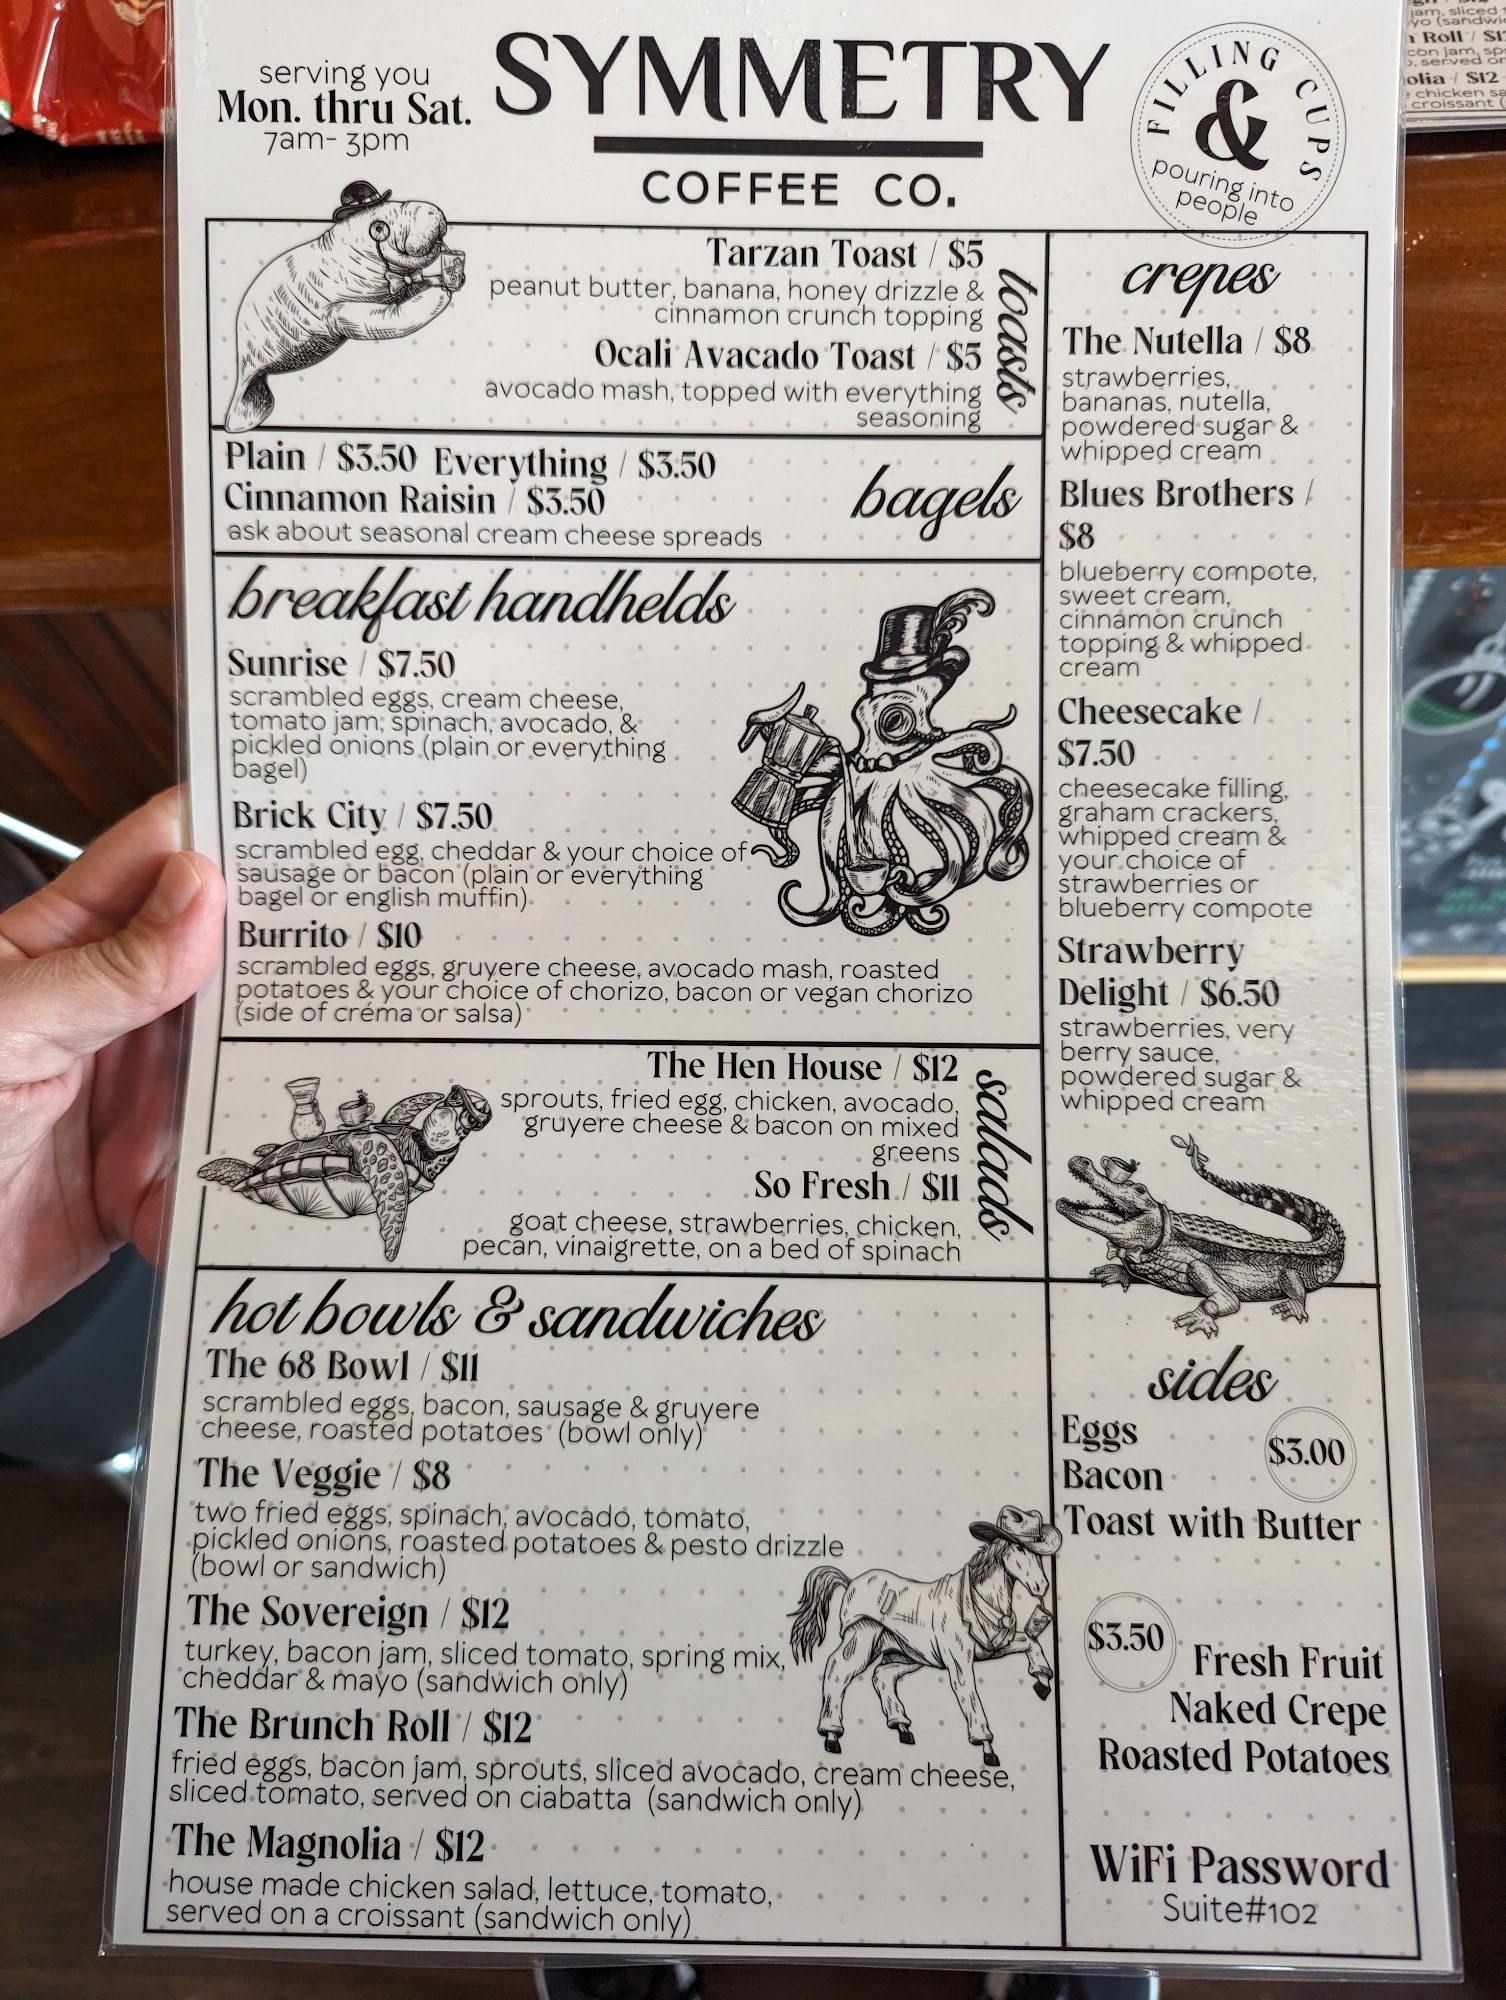 serving you
Mon. thru Sat.
7am- 3pm
SYMMETRY
COFFEE CO.
FILLING CUPS
&
pouring into
people
toasts
Tarzan Toast / $5
peanut butter, banana, honey drizzle &
cinnamon crunch topping
Ocali Avacado Toast / $5
avocado mash, topped with everything
seasoning
bagels
Plain / $3.50 Everything / $3.50
Cinnamon Raisin / $3.50
ask about seasonal cream cheese spreads
breakfast handhelds
Sunrise / $7.50
scrambled eggs, cream cheese,
tomato jam, spinach, avocado, &
pickled onions (plain or everything
bagel)
Brick City / $7.50
scrambled egg, cheddar & your choice of
sausage or bacon (plain or everything
bagel or english muffin)
Burrito / $10
scrambled eggs, gruyere cheese, avocado mash, roasted
potatoes & your choice of chorizo, bacon or vegan chorizo
(side of créma or salsa)
salads
The Hen House / $12
sprouts, fried egg, chicken, avocado,
gruyere cheese & bacon on mixed
greens
So Fresh / $11
goat cheese, strawberries, chicken,
pecan, vinaigrette, on a bed of spinach
hot bowls & sandwiches
The 68 Bowl / $11
scrambled eggs, bacon, sausage & gruyere
cheese, roasted potatoes (bowl only)
The Veggie / $8
two fried eggs, spinach, avocado, tomato,
pickled onions, roasted potatoes & pesto drizzle
(bowl or sandwich)
The Sovereign / $12
turkey, bacon jam, sliced tomato, spring mix,
cheddar & mayo (sandwich only)
The Brunch Roll / $12
fried eggs, bacon jam, sprouts, sliced avocado, cream cheese,
sliced tomato, served on ciabatta (sandwich only)
The Magnolia / $12
house made chicken salad, lettuce, tomato,
served on a croissant (sandwich only)
crepes
The Nutella / $8
strawberries,
bananas, nutella,
powdered sugar &
whipped cream
Blues Brothers /
$8
blueberry compote,
sweet cream,
cinnamon crunch
topping & whipped
cream
Cheesecake /
$7.50
cheesecake filling,
graham crackers,
whipped cream &
your choice of
strawberries or
blueberry compote
Strawberry
Delight / $6.50
strawberries, very
berry sauce,
powdered sugar &
whipped cream
sides
Eggs
Bacon
$3.00
Toast with Butter
$3.50
Fresh Fruit
Naked Crepe
Roasted Potatoes
WiFi Password
Suite#102
jam, sliced
Roll / $12
con jam, sp
served on
olia / $12
chicken sa
croissant (